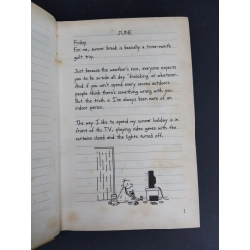 JUNE
Friday
For me, summer break is basically a three-month
guilt trip.
Just because the weather's nice, everyone expects
you to be outside all day "frolicking" or whatever.
And if you don't spend every second outdoors,
people think there's something wrong with you.
But the truth is, I've always been more of an
indoor person.
The way I like to spend my summer holiday is in
front of the TV, playing video games with the
curtains closed and the lights turned off.
1